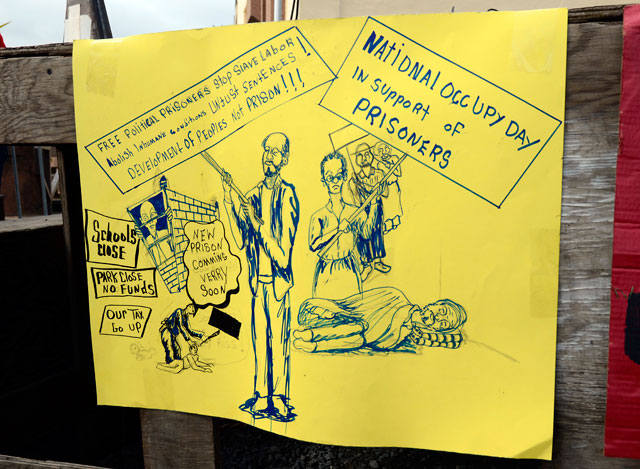 FREE POLITICAL PRISONERS STOP SLAVE LABOR
Abolish Inhumane Conditions UNJUST SENTENCES !!
DEVELOPMENT OF PEOPLES NOT PRISON!!!
NATIONAL OCCUPY DAY
IN SUPPORT OF
PRISONERS
SCHOOLS
CLOSE
PARK CLOSE
NO FUNDS
OUR TAX
GO UP
NEW
PRISON
COMMING
VERRY
SOON